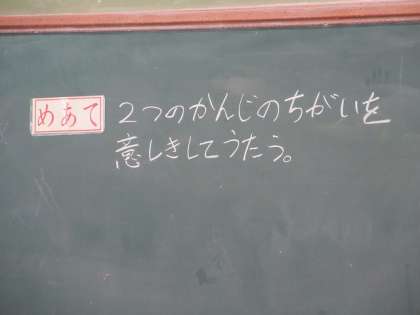 めあて 2つのかんじのちがいを
意しきしてうたう。